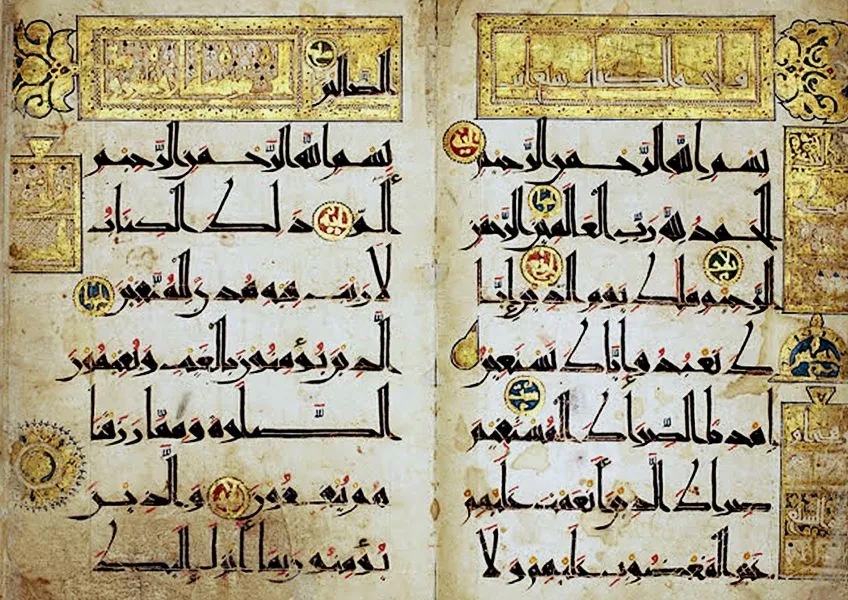 فاتحة الكتاب سبع آيات
بِسْمِ اللَّهِ الرَّحْمَنِ الرَّحِيمِ
الْحَمْدُ لِلَّهِ رَبِّ الْعَالَمِينَ الرَّحْمَنِ
الرَّحِيمِ مَلِكِ يَوْمِ الدِّينِ إِيَّا
كَ نَعْبُدُ وَإِيَّاكَ نَسْتَعِينُ
اهْدِنَا الصِّرَاطَ الْمُسْتَقِيمَ
صِرَاطَ الَّذِينَ أَنْعَمْتَ عَلَيْهِمْ
غَيْرِ الْمَغْضُوبِ عَلَيْهِمْ وَلَا
الضَّالِّينَ
بِسْمِ اللَّهِ الرَّحْمَنِ الرَّحِيمِ
الم ذَلِكَ الْكِتَابُ
لَا رَيْبَ فِيهِ هُدًى لِلْمُتَّقِينَ
الَّذِينَ يُؤْمِنُونَ بِالْغَيْبِ وَيُقِيمُونَ
الصَّلَوةَ وَمِمَّا رَزَقْنَا
هُمْ يُنْفِقُونَ وَالَّذِينَ
يُؤْمِنُونَ بِمَا أُنْزِلَ إِلَيْكَ